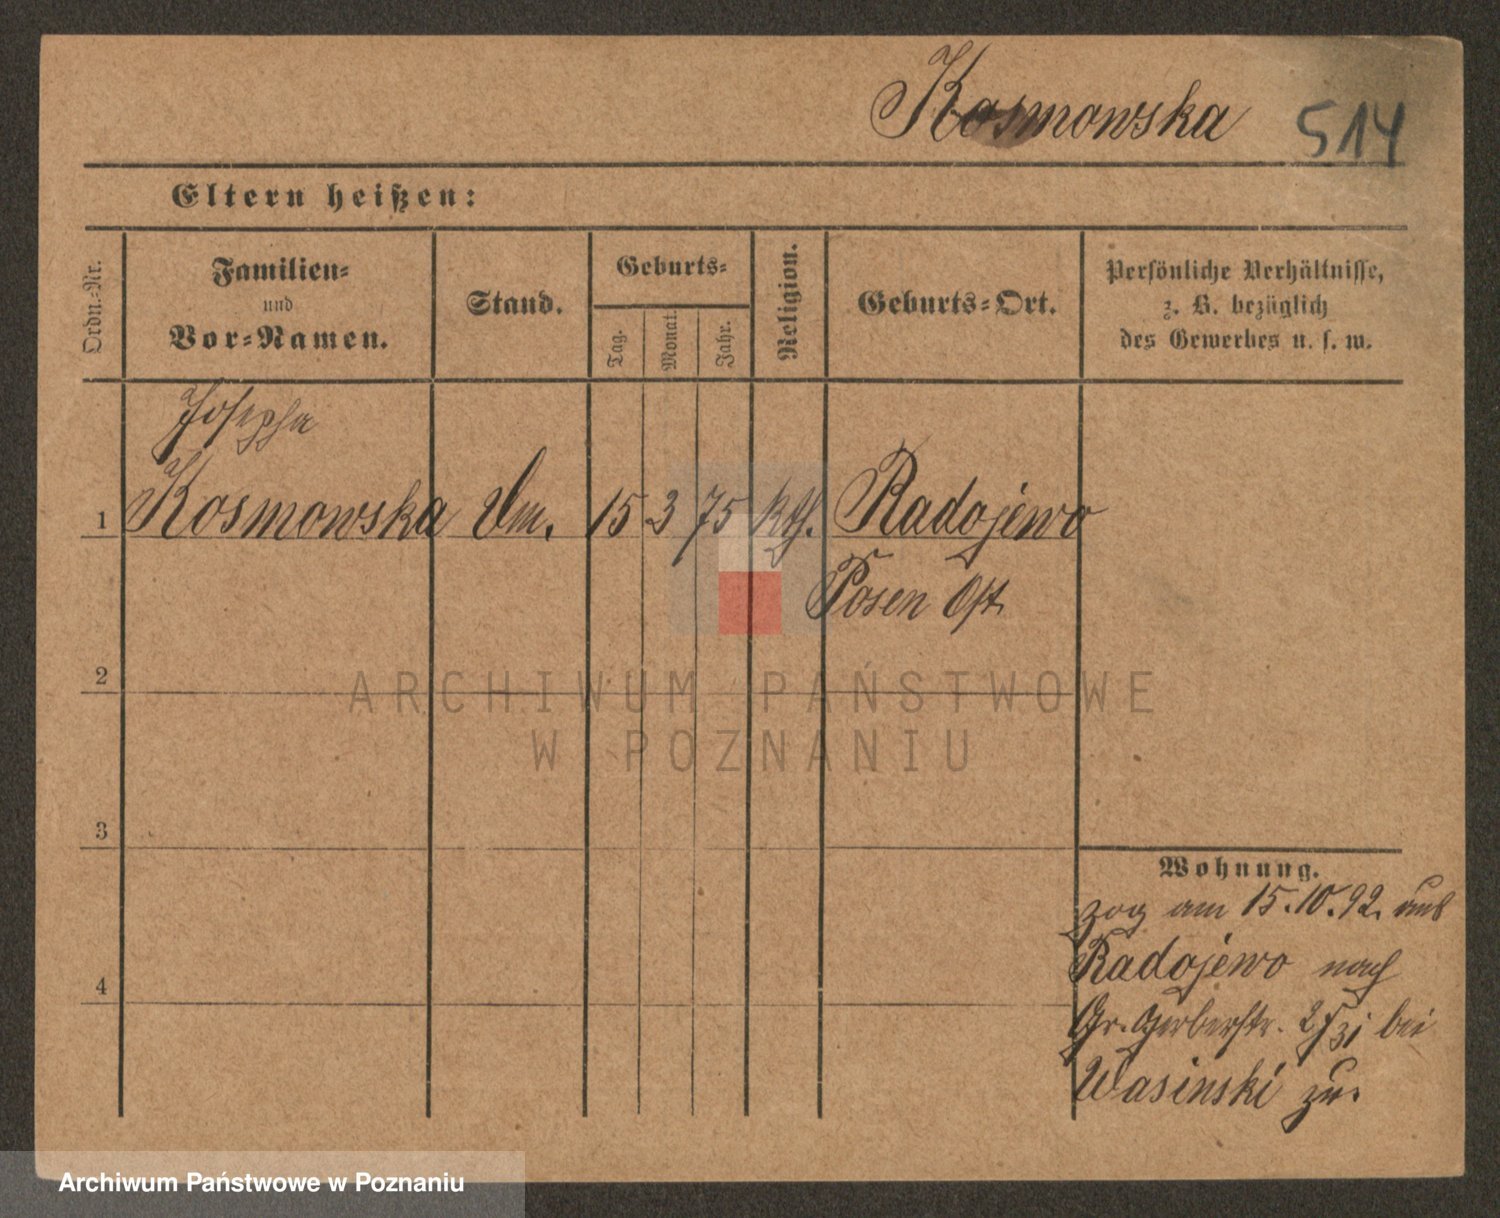 Kosmowska 514
Eltern heißen:
Ordn.=Nr.
Familien=
und
Vor=Namen.
Stand.
Geburts=
Tag.
Monat.
Jahr.
Religion.
Geburts=Ort.
Persönliche Verhältnisse,
z. B. bezüglich
des Gewerbes u. s. w.
Josepha
1 Kosmowska 15 3 75 kth. Radojewo
Posen Ost.
2
3
4
Wohnung.
zog am 15.10.92. aus
Radojewo nach
Gr. Gerberstr. bei
Wasinski zu.
ARCHIWUM PAŃSTWOWE
W POZNANIU
Archiwum Państwowe w Poznaniu